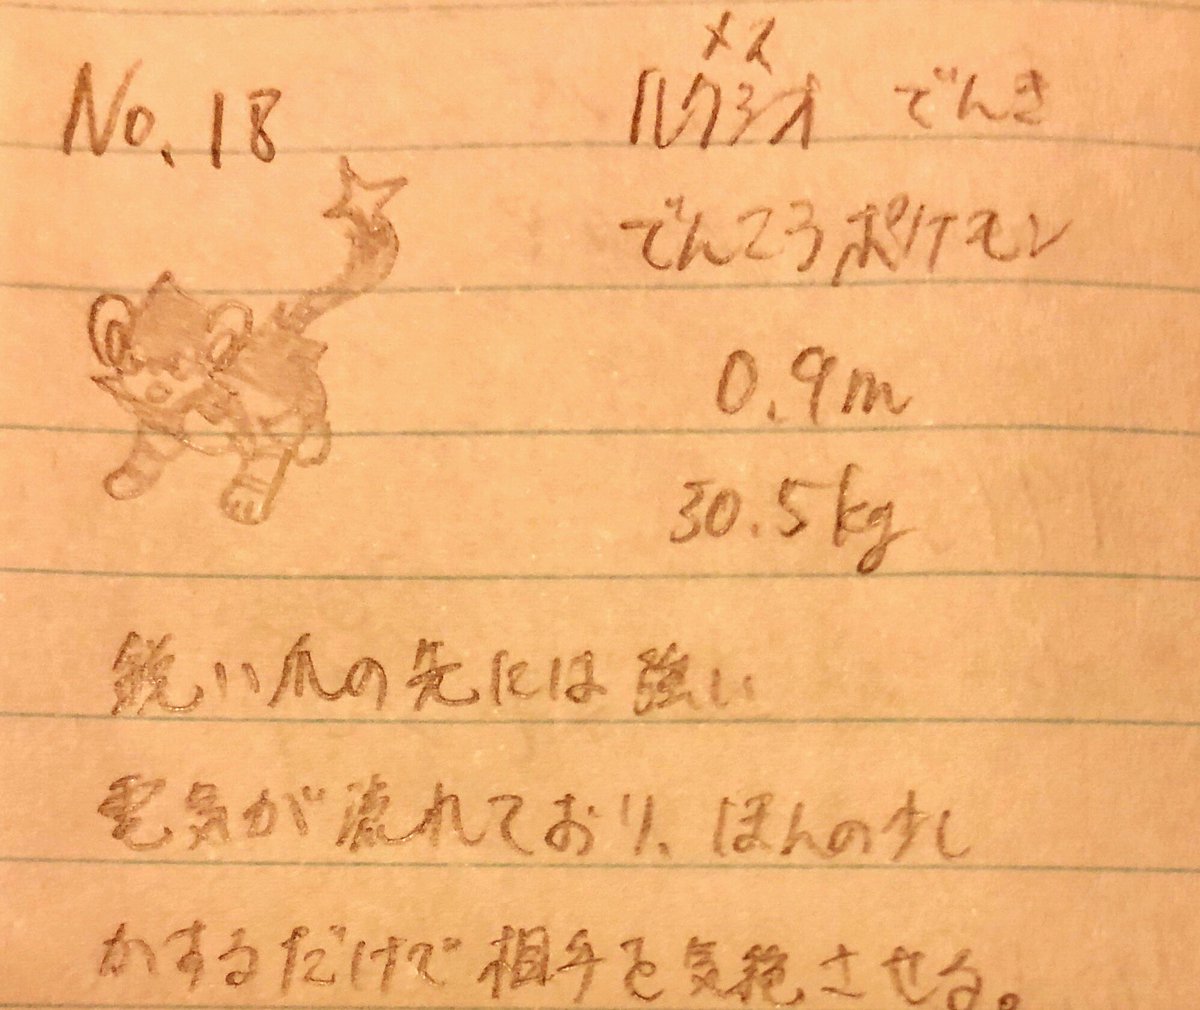 No.18
メス
ルクシオ でんき
でんこうポケモン
0.9m
30.5kg
鋭い爪の先には強い
電気が流れており、ほんの少し
かするだけで相手を気絶させる。